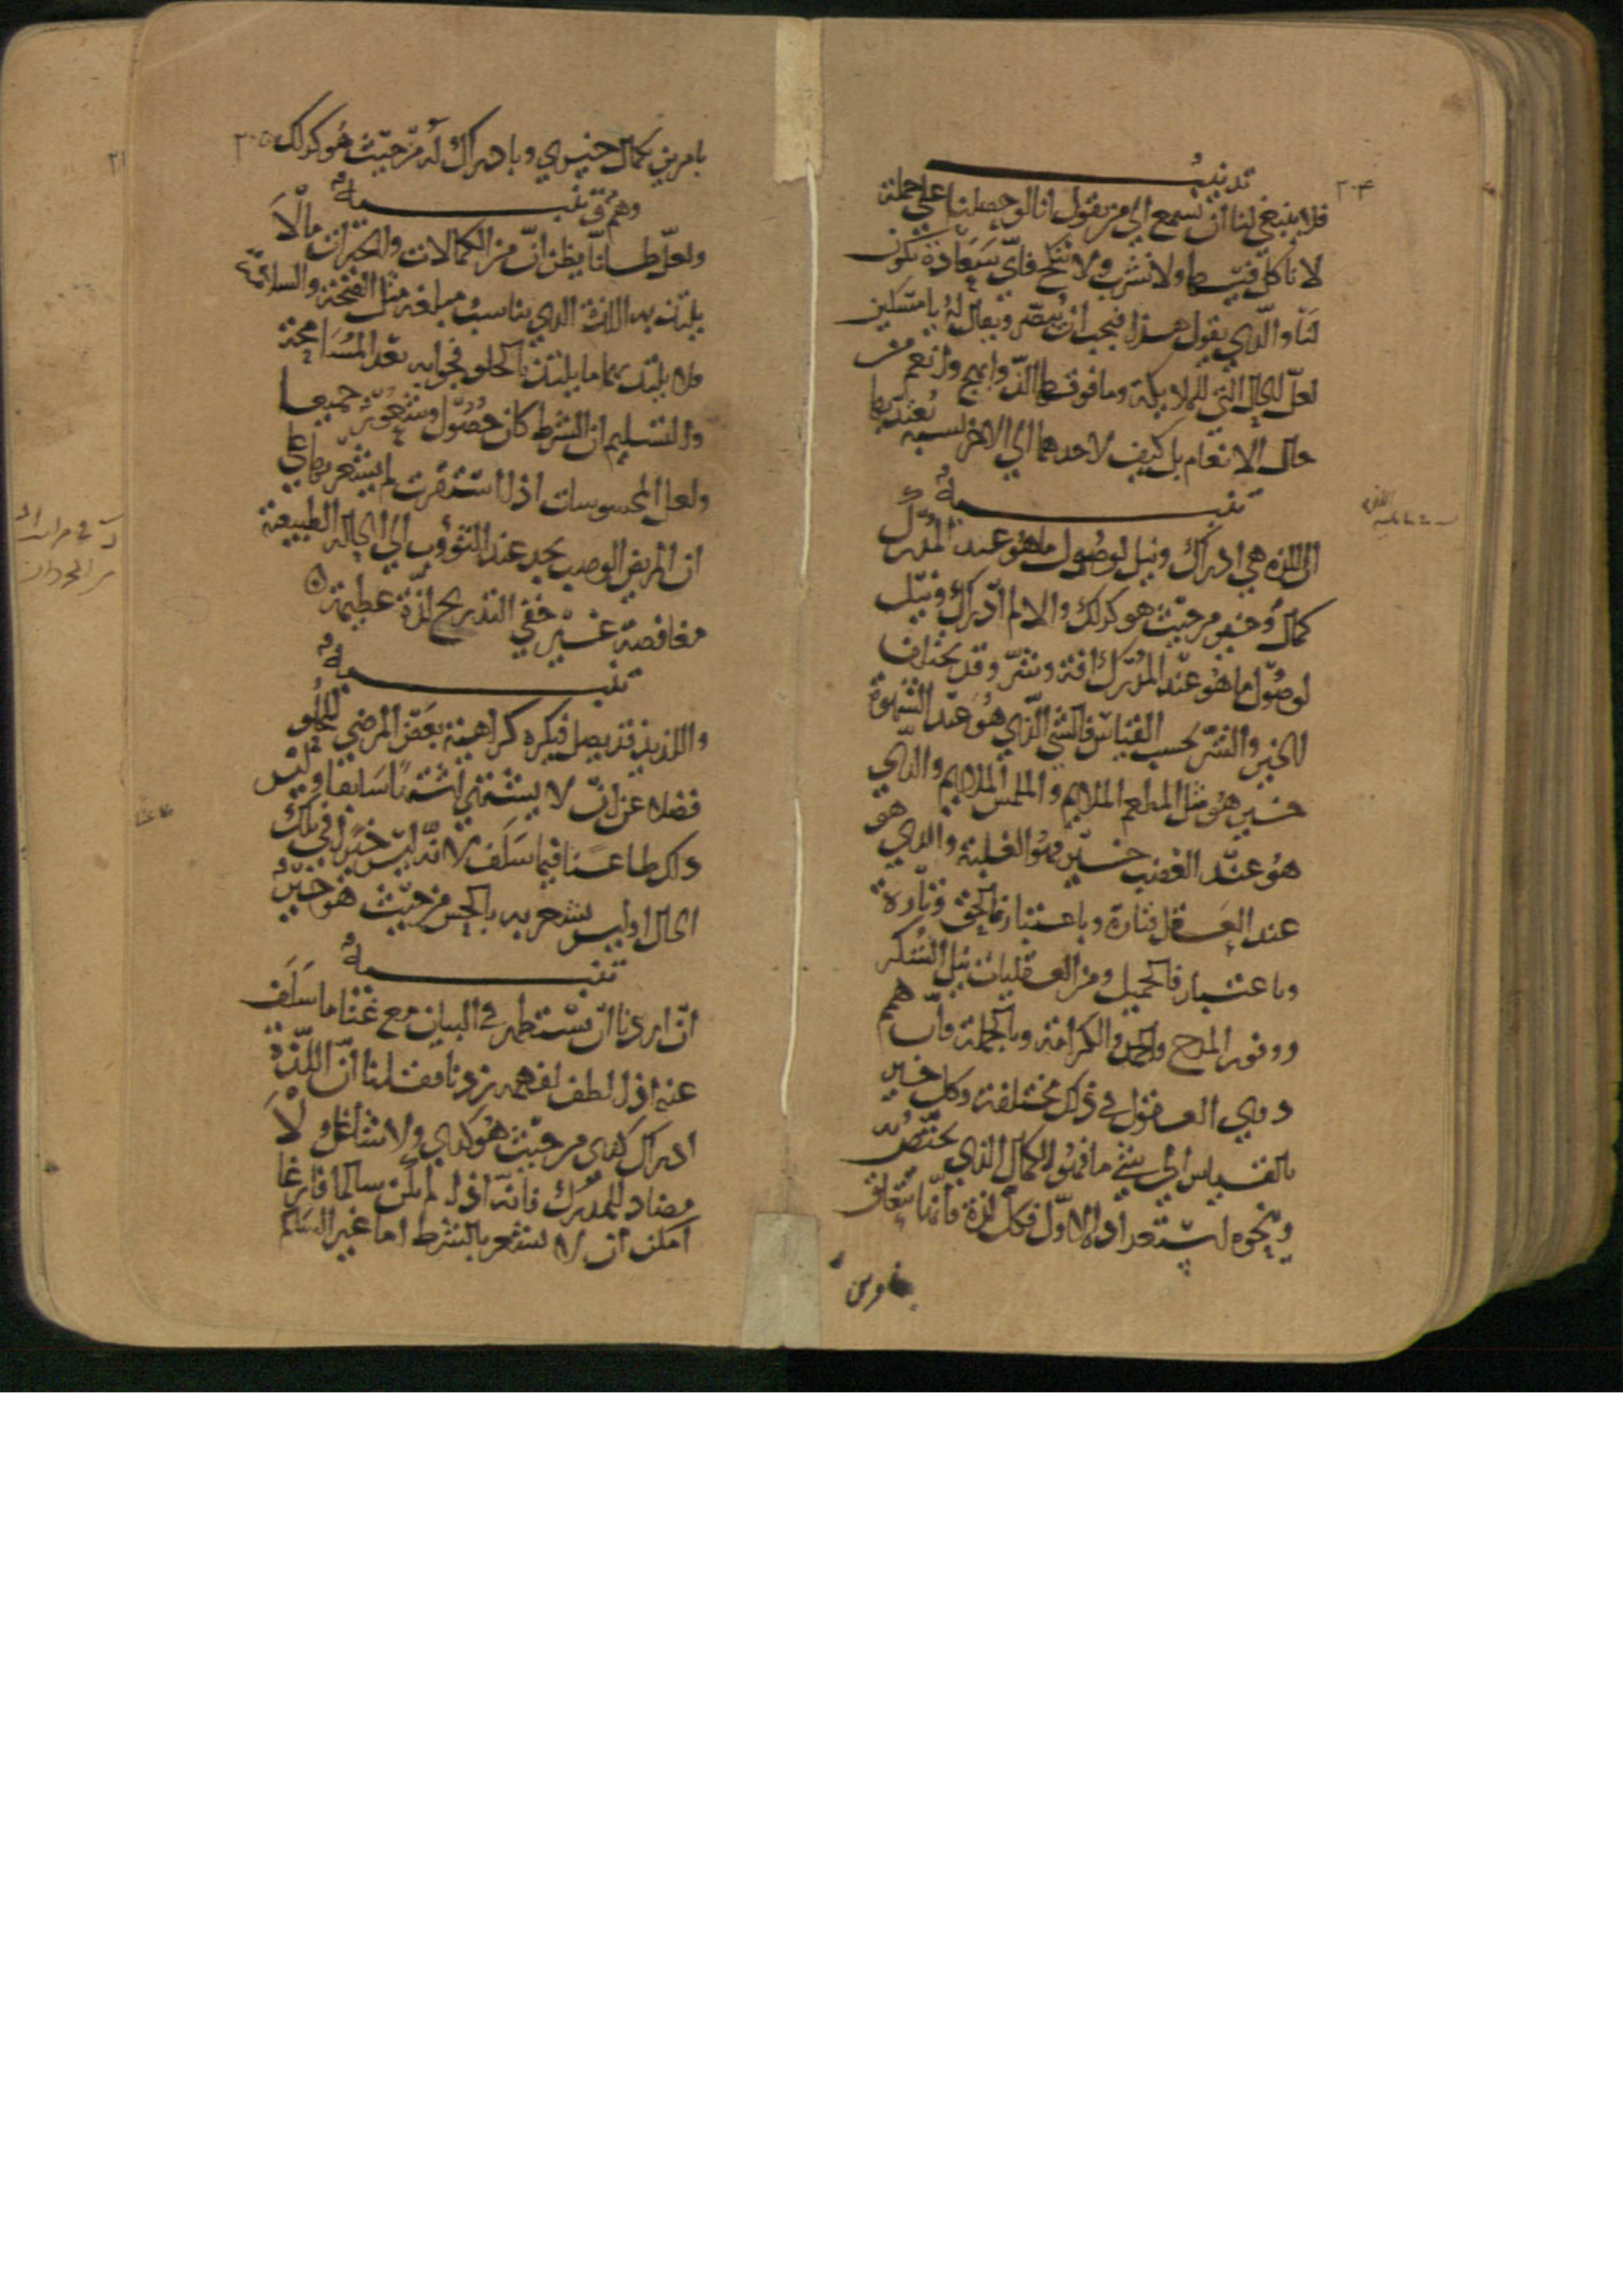 ٢٠۴
تذنيب
فلا ينبغي لنا ان نسمع الي من يقول انا لو حصلنا علي جملة
لا نأكل فيها ولا نشرب ولا ننكح فاي سعادة تكون
لنا والذي يقول هذا فيجب ان يبصر ويقال له يا مسكين
لعل الحال التي للملايكة وما فوقها الذ وابهج وانعم من
حال الانعام بل كيف لاحدهما الي الاخر نسبة يعتد بها
تنبيه
ان اللذة هي ادراك ونيل لوصول ما هو عند المدرك
كمال وخير من حيث هو كذلك والالم ادراك ونيل
لوصول ما هو عند المدرك افة وشر وقد يختلف
الخير والشر بحسب القياس فالشي الذي هو عند الشهوة
خير هو مثل المطعم الملايم والملمس الملايم والذي
هو عند الغضب خير فهو الغلبة والذي هو
عند العقل فتارة وباعتبار فالحق وتارة
وباعتبار فالجميل ومن العقليات نيل الشكر
ووفور المدح والحمد والكرامة وبالجملة فان همم
ذوي العقول في ذلك مختلفة وكل خير
بالقياس الي شي ما فهو الكمال الذي يختص به
وينحوه باستعداده الاول فكل لذة فانها تتعلق
بامرين
٢٠٥
بامرين بكمال خيري وبادراك له من حيث هو كذلك
وهم وتنبيه
ولعل ظانا يظن ان من الكمالات والخيرات ما لا
يلتذ به اللذة الذي يناسب مبلغه مثل الصحة والسلامة
فلا يلتذ بهما ما يلتذ بالحلو فجوابه بعد المسامحة
والتسليم ان الشرط كان حصول وشعور جميعا
ولعل المحسوسات اذا استقرت لم يشعر بها علي
ان المريض الوصب يجد عند الثؤوب الي الحالة الطبيعية
مغافصة غير خفي التدريج لذة عظيمة
تنبيه
واللذيذ قد يصل فيكره كراهية بعض المرضي للحلو
فضلا عن ان لا يشتهي اشتهاا سابقا وليس
ذلك طاعنا فيما سلف لانه ليس خيرا في تلك
الحال اوليس يشعر به بالحس من حيث هو خير
تنبيه
ان اردنا ان نستظهر في البيان مع غنا ما سلف
عنه اذا لطف لفهمه زدنا فقلنا ان اللذة
ادراك كذي من حيث هو كذي ولا شاغل ولا
مضاد للمدرك فانه اذا لم يكن سالما فارغا
امكن ان لا يشعر بالشرط اما غير السالم